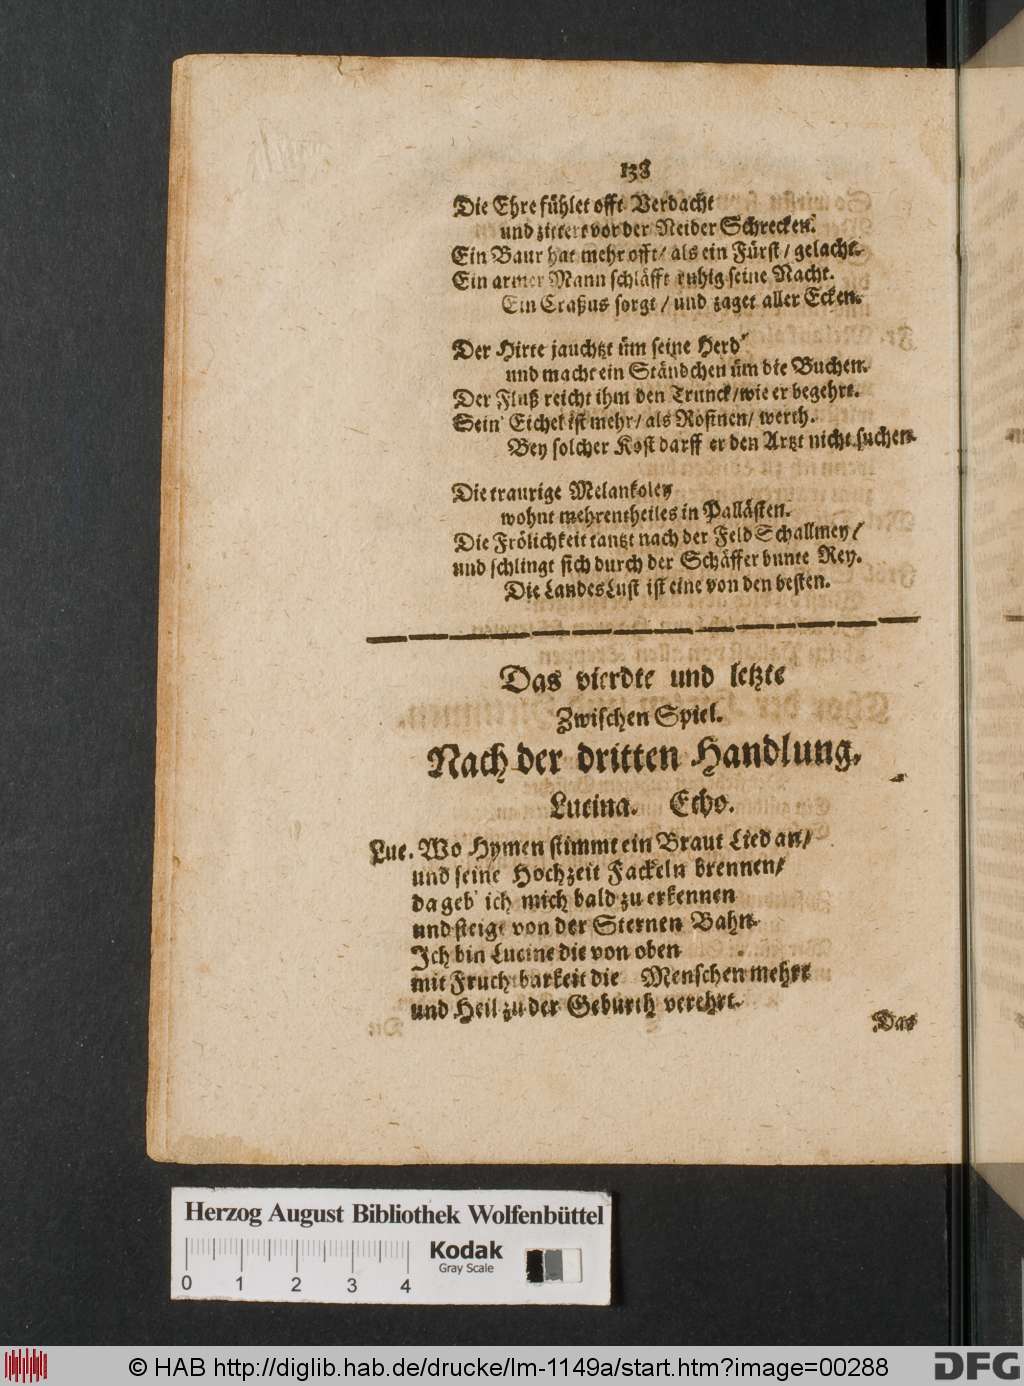 138
Die Ehre fühlet offt Verdacht
und zittert vor der Neider Schrecken.
Ein Baur hat mehr offt / als ein Fürst / gelacht.
Ein armer Mann schläfft ruhig seine Nacht.
Ein Craßus sorgt / und zaget aller Ecken.
Der Hirte jauchtzt üm seine Herd'
und macht ein Ständchen üm die Buchen.
Der Fluß reicht ihm den Trunck / wie er begehrt.
Sein' Eichel ist mehr / als Rosinen / werth.
Bey solcher Kost darff er den Artzt nicht suchen.
Die traurige Melankoley
wohnt mehrentheiles in Pallästen.
Die Frölichkeit tantzt nach der Feld Schallmey /
und schlingt sich durch der Schäffer bunte Rey.
Die Landes Lust ist eine von den besten.
Das vierdte und letzte
Zwischen Spiel.
Nach der dritten Handlung.
Lucina. Echo.
Luc. Wo Hymen stimmt ein Braut Lied an /
und seine Hochzeit Fackeln brennen /
da geb' ich mich bald zu erkennen
und steige von der Sternen Bahn.
Ich bin Lucine die von oben
mit Fruchtbarkeit die Menschen mehrt
und Heil zu der Geburth verehrt.
Das
Herzog August Bibliothek Wolfenbüttel
Kodak
Gray Scale
0 1 2 3 4
© HAB http://diglib.hab.de/drucke/lm-1149a/start.htm?image=00288
DFG